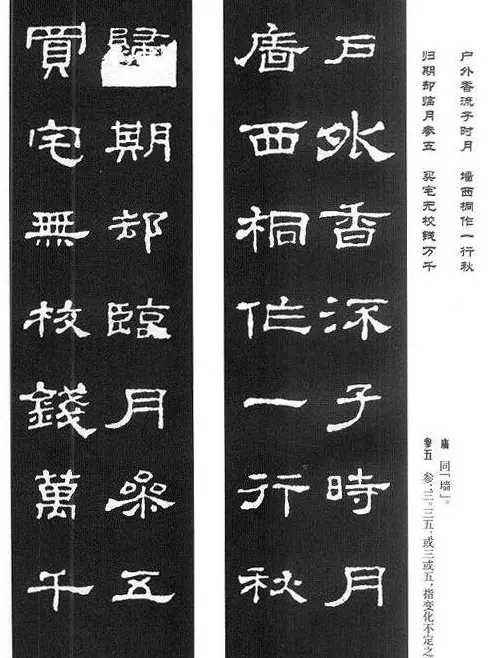 户外香流子时月　墙西桐作一行秋
归期却临月参五　买宅无校錢万千
廧　同「墙」。
参五　参：三。三五，或三或五，指变化不定之
戶外香流子時月
廧西桐作一行秋
歸期却臨月參五
買宅無校錢萬千